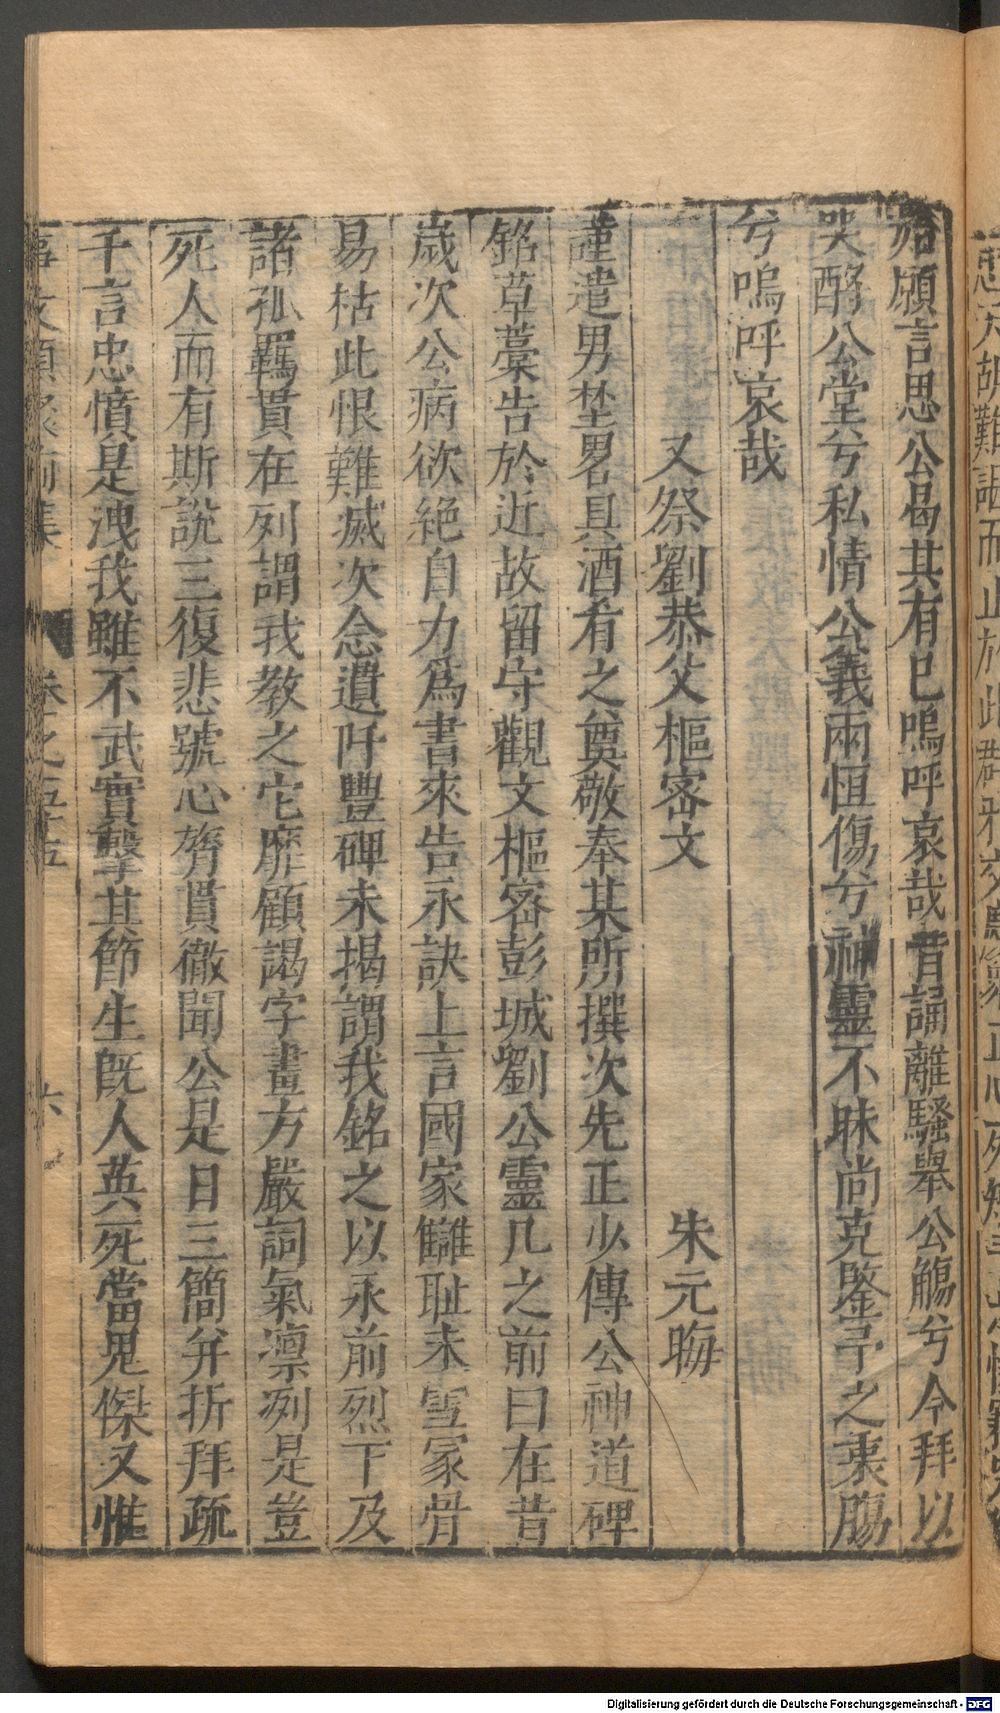 願言思公曷其有已嗚呼哀哉昔誦離騷舉公觴兮今拜以
哭酹公堂兮私情公義兩恒傷兮神靈不昧尚克鑒予之衷腸
兮嗚呼哀哉
又祭劉恭父樞密文 朱元晦
謹遣男埜畧具酒肴之奠敬奉某所撰次先正少傳公神道碑
銘草藁告於近故留守觀文樞密彭城劉公靈几之前曰在昔
歲次公病欲絕自力爲書來告永訣上言國家讎耻未雪冢骨
易枯此恨難滅次念遺阡豐碑未揭謂我銘之以永前烈下及
諸孤羈貫在列謂我教之它靡顧謁字畫方嚴詞氣凛冽是豈
死人而有斯說三復悲號心膂貫徹聞公是日三簡并折拜疏
千言忠憤是洩我雖不武實擊其節生旣人英死當鬼傑又惟
卷之五十五
六
Digitalisierung gefördert durch die Deutsche Forschungsgemeinschaft - DFG